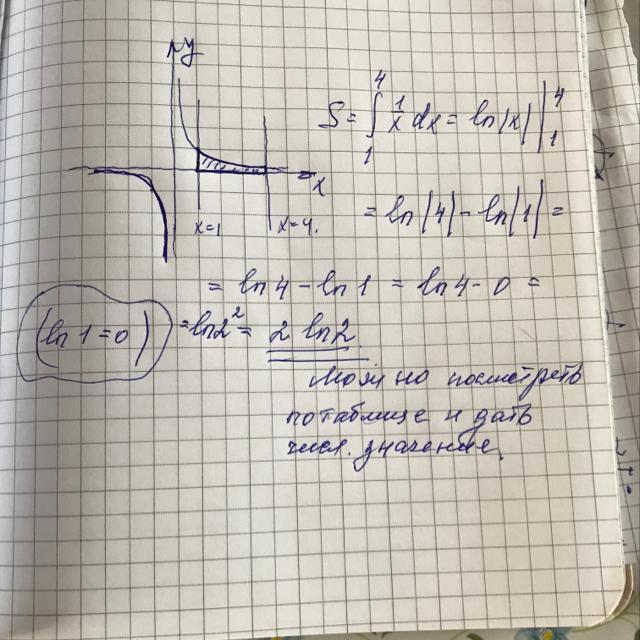 y
S = ∫₁⁴ 1/x dx = ln|x| |₁⁴
x
x=1 x=4.
= ln|4| - ln|1| =
= ln 4 - ln 1 = ln 4 - 0 =
(ln 1 = 0) = ln 2² = 2 ln 2
Можно посмотреть
по таблице и дать
числ. значение.